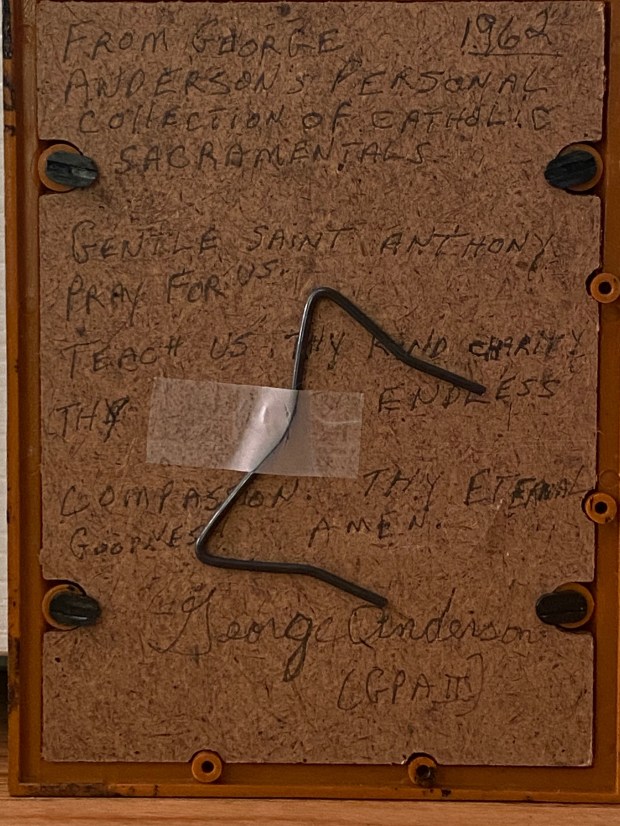 FROM GEORGE 1962
ANDERSON'S PERSONAL
COLLECTION OF CATHOLIC
SACRAMENTALS
GENTLE SAINT ANTHONY
PRAY FOR US.
TEACH US THY KIND CHARITY
THY ENDLESS
COMPASSION. THY ETERNAL
GOODNESS AMEN.
George Anderson
(GPA II)